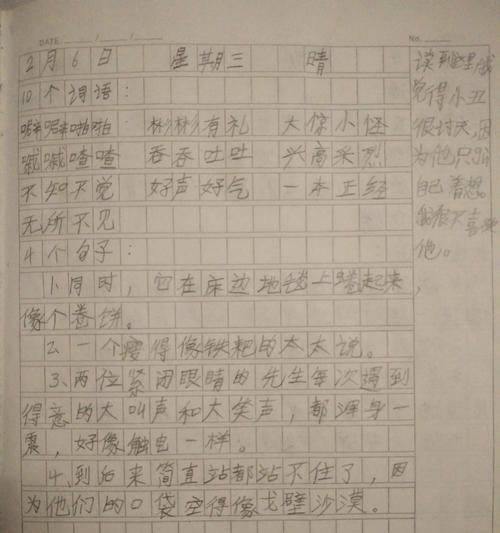 DATE / /
No.
2月6日 星期三 晴
10个词语:
噼噼啪啪 彬彬有礼 大惊小怪
喊喊喳喳 吞吞吐吐 兴高采烈
不知不觉 好声好气 一本正经
无所不见
4个句子:
1.同时,它在床边地毯上蜷起来,
像个卷饼。
2.一个瘦得像铁耙的太太说。
3、两位紧闭眼睛的先生每次遇到
得意的大叫声和大笑声,都浑身一
震,好像触电一样。
4、到后来简直站都站不住了,因
为他们的口袋空得像戈壁沙漠。
读到这里我
觉得小丑
很讨厌,因
为他只为
自己着想。
我很不喜欢
他。